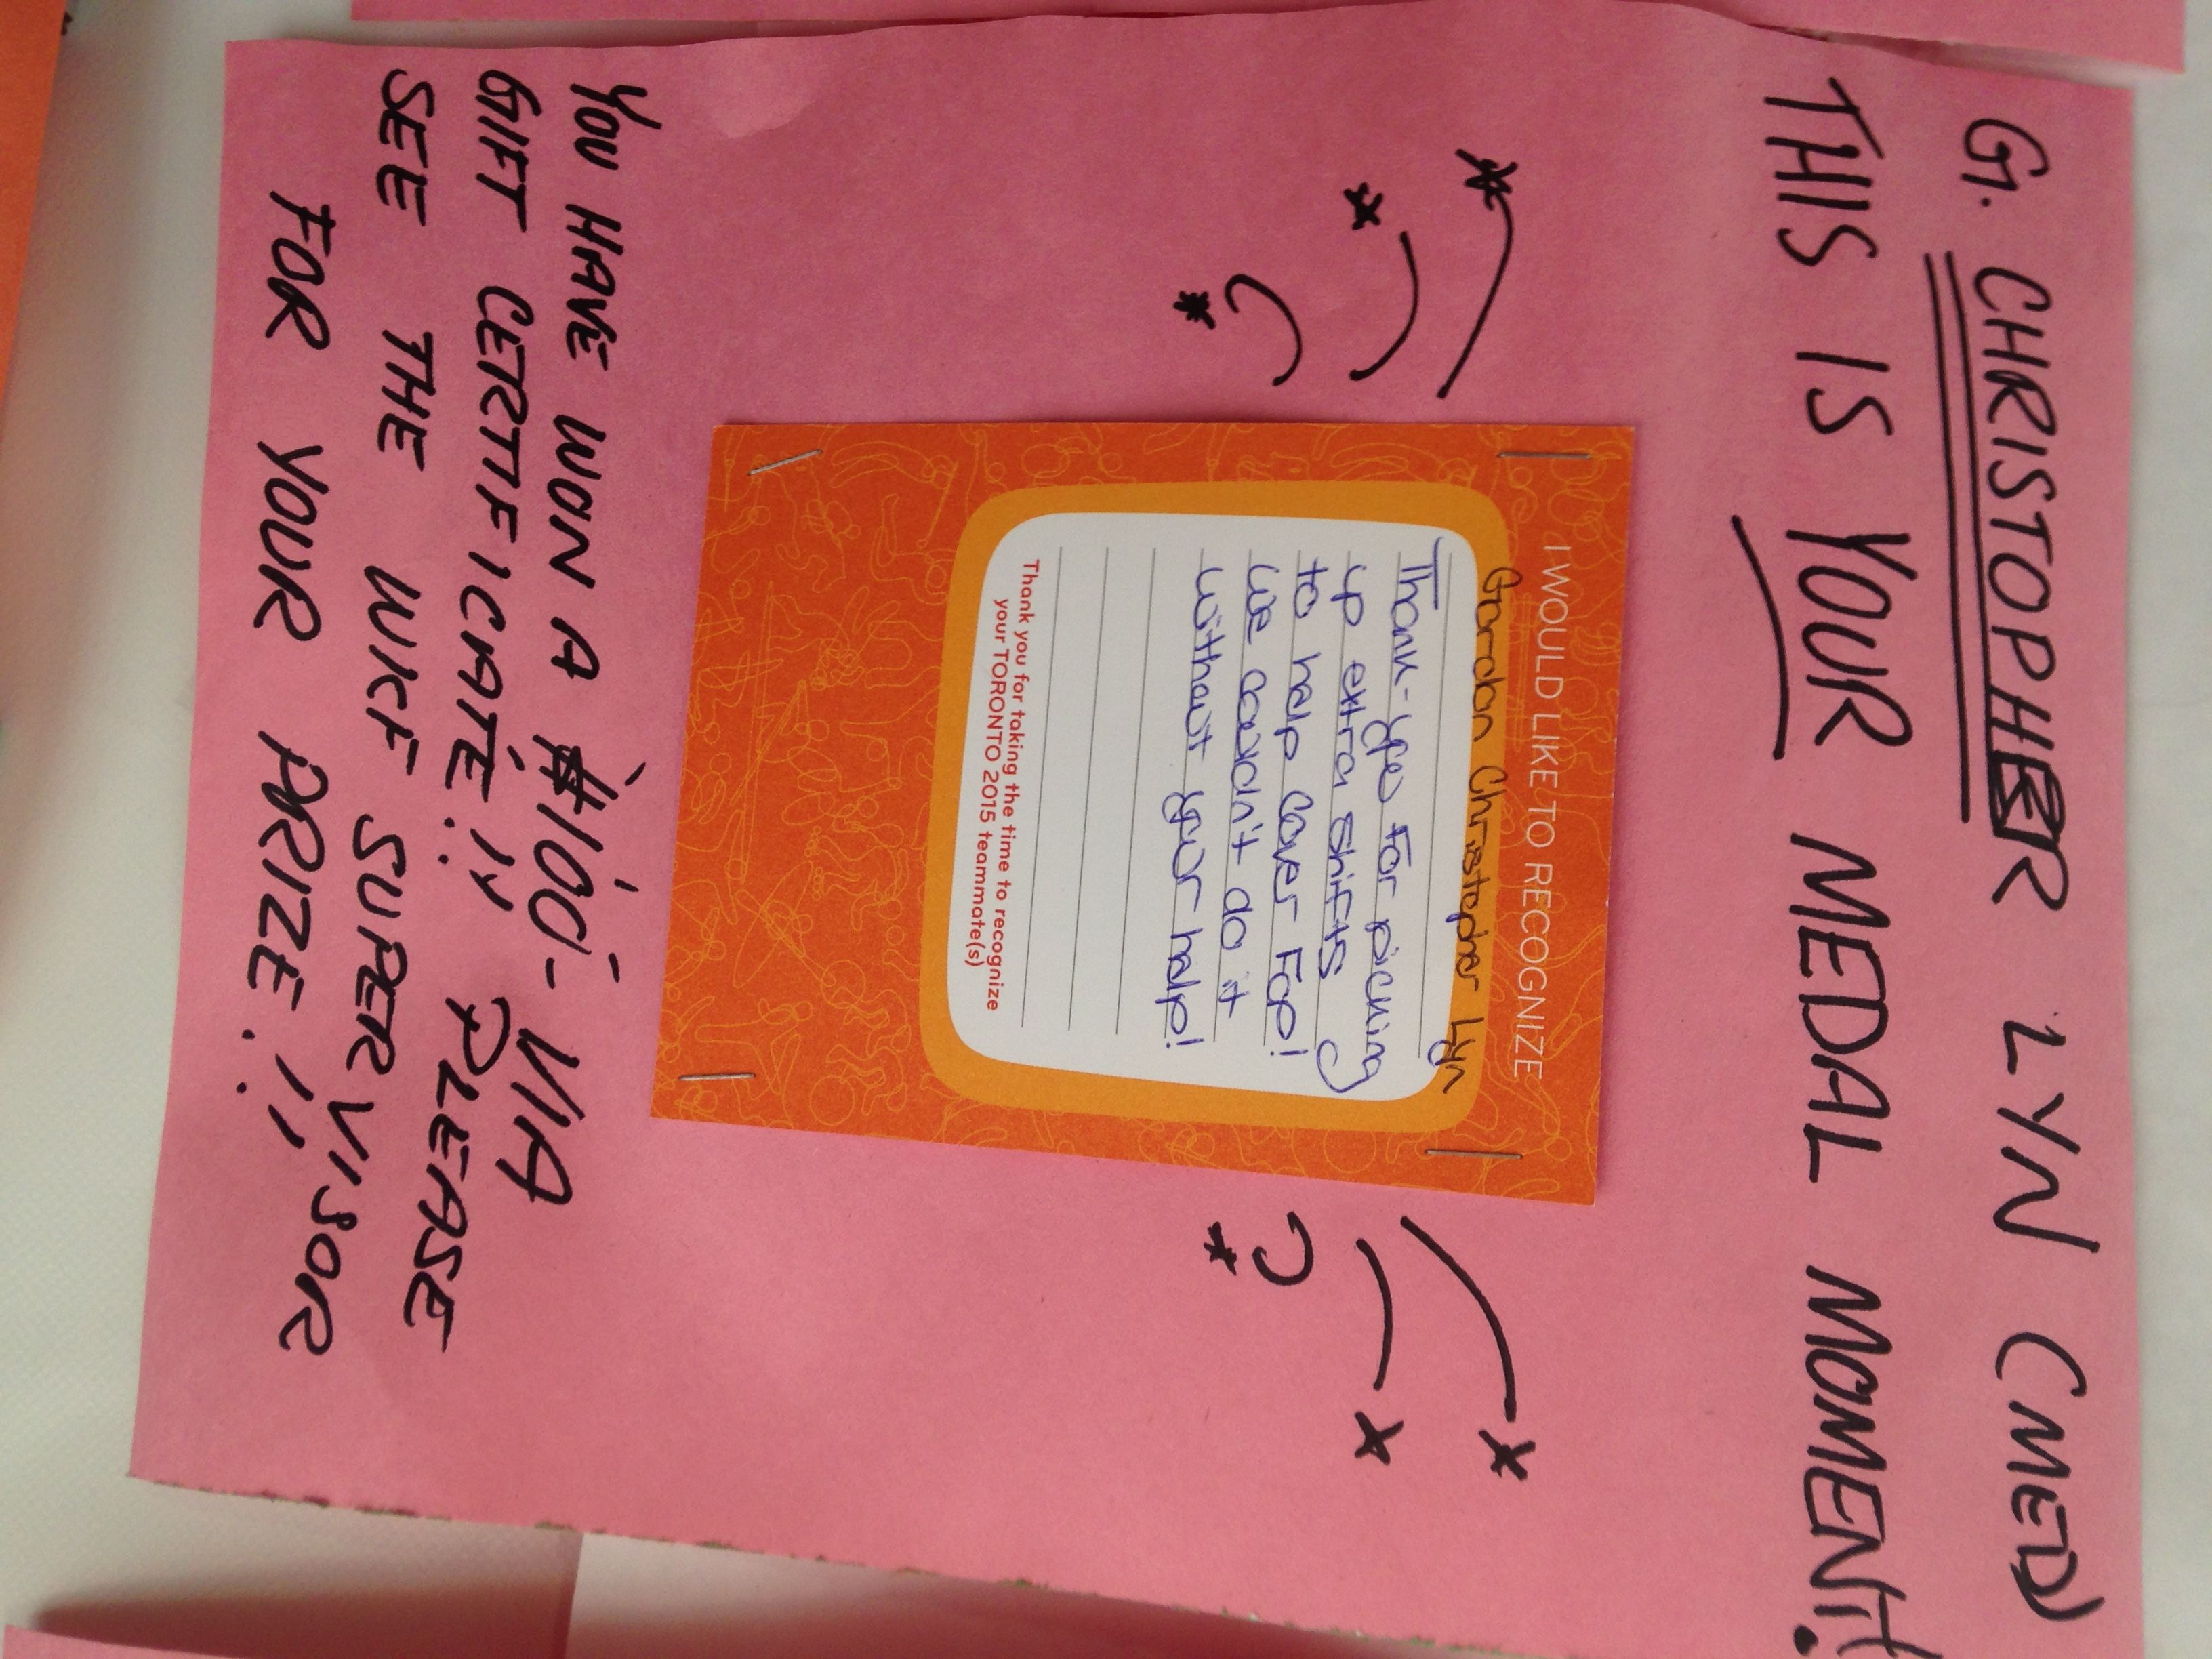 G. CHRISTOPHER LYN (MED)
THIS IS YOUR MEDAL MOMENT!
I WOULD LIKE TO RECOGNIZE
Gordon Christopher Lyn
Thank-you For picking
up extra shifts
to help cover FOP!
We couldn't do it
without your help!
Thank you for taking the time to recognize
your TORONTO 2015 teammate(s)
YOU HAVE WON A $100- VIA
GIFT CERTIFICATE!! PLEASE
SEE THE WKF SUPERVISOR
FOR YOUR PRIZE!!